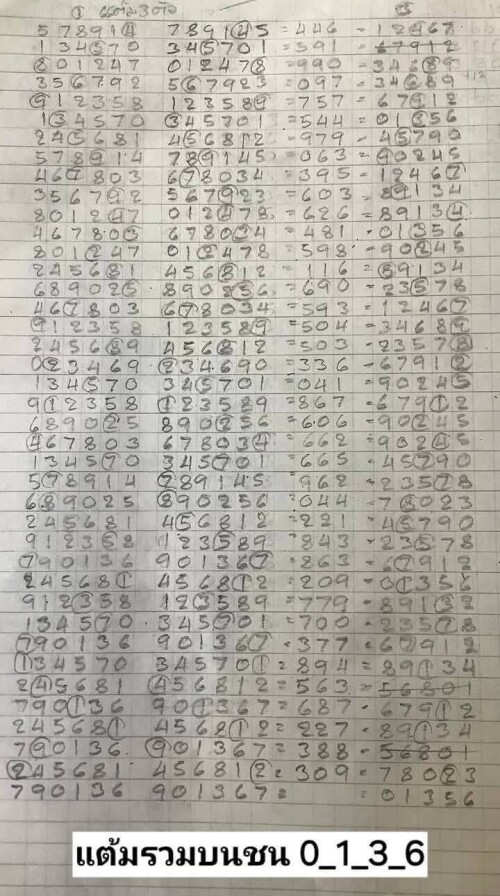 ① แต้ม 3 ตัว B
578914 789145 = 446 - 12467
134570 345701 = 391 - 67912
801247 012478 = 990 = 34689
356792 567923 = 097 - 34689
912358 123589 = 757 - 67912
134570 345701 = 544 = 01356
245681 456812 = 979 - 45790
578914 789145 = 063 = 90245
467803 678034 = 395 - 12467
356792 567923 = 603 = 89134
801247 012478 = 626 = 89134
467803 678034 = 481 - 01356
801247 012478 = 598 - 90245
245681 456812 = 116 = 89134
689025 890256 = 690 = 23578
467803 678034 = 593 = 12467
912358 123589 = 504 - 34689
245689 456812 = 503 - 23578
023469 234690 = 336 - 67912
134570 345701 = 041 - 90245
912358 123589 = 867 - 67912
689025 890256 = 606 - 90245
467803 678034 = 662 = 90245
134570 345701 = 665 - 45790
578914 789145 = 962 - 23578
689025 890256 = 044 - 78023
245681 456812 = 221 - 45790
912358 123589 = 843 - 23578
790136 901367 = 863 - 67912
245681 456812 = 209 = 01356
912358 123589 = 779 - 89132
134570 345701 = 700 - 23578
790136 901367 = 377 = 67912
134570 345701 = 894 = 89134
245681 456812 = 563 = 56801
790136 901367 = 687 - 67912
245681 456812 = 227 - 89134
790136 901367 = 388 - 56801
245681 456812 = 309 = 78023
790136 901367 = = 01356
แต้มรวมบนชน 0_1_3_6